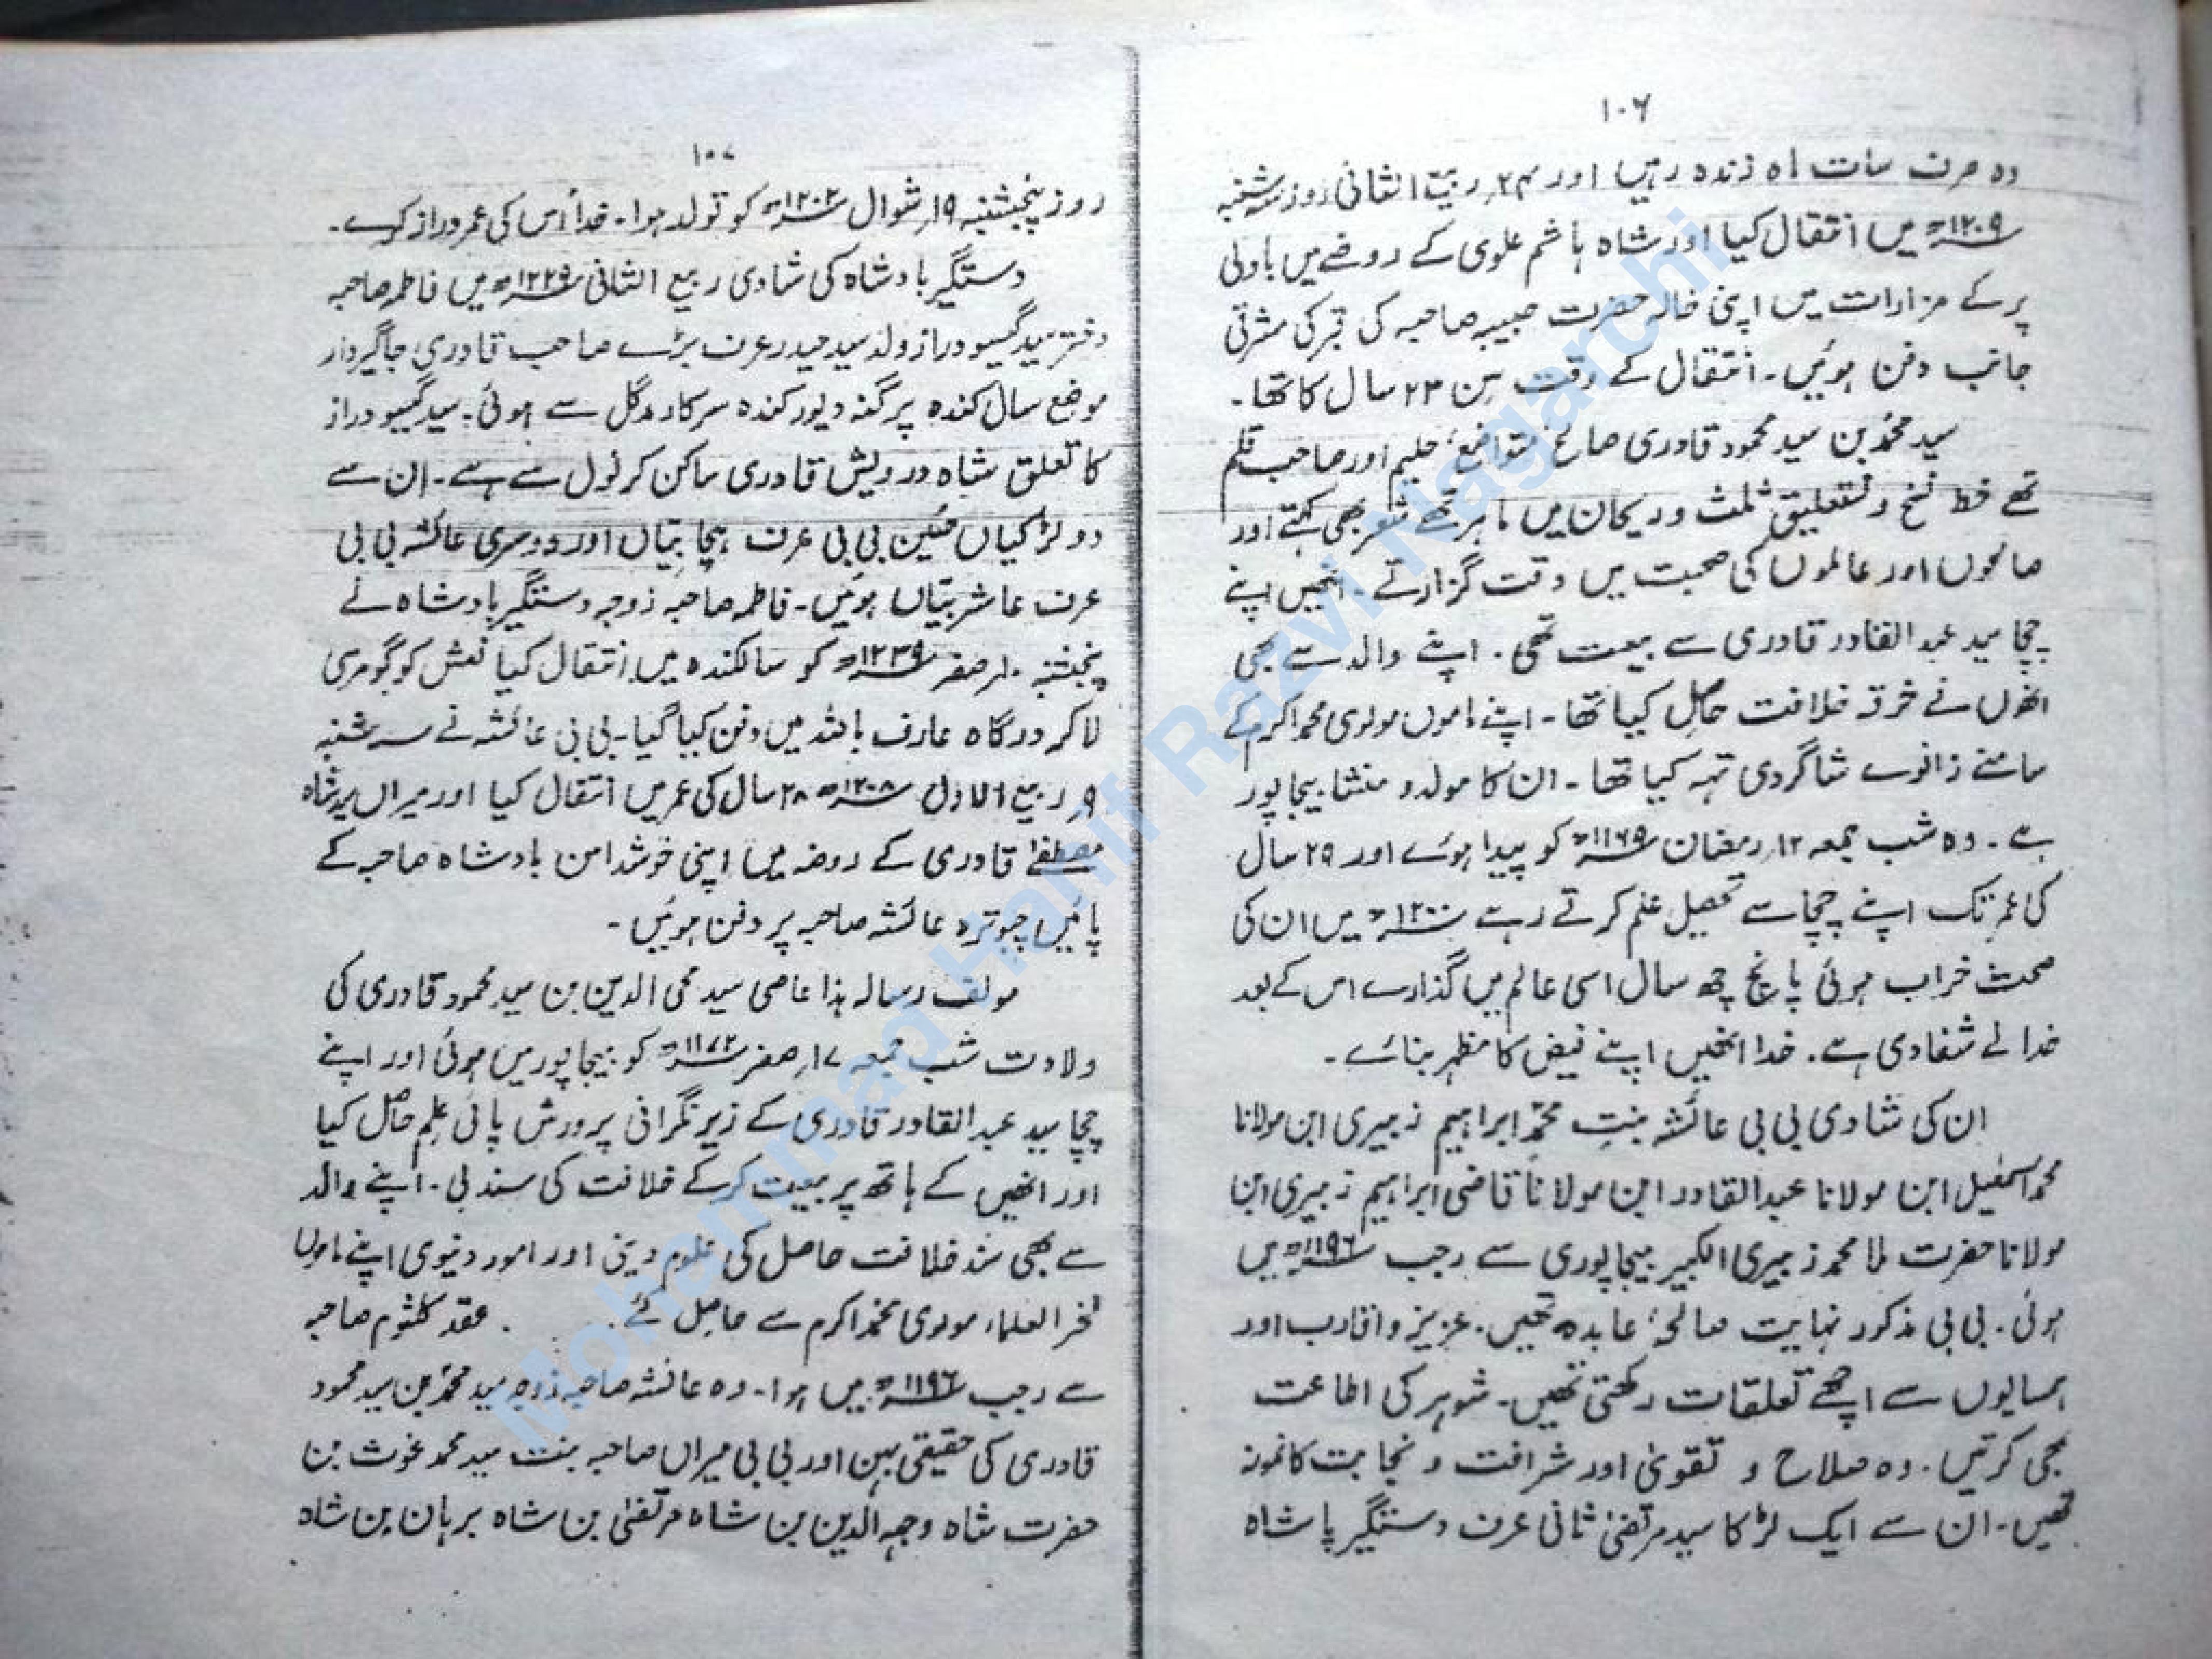 ۱۰۶
وہ صرف سات ماہ زندہ رہیں اور ۲۴؍ ربیع الثانی روز سہ شنبہ
۱۲۰۹ھ میں انتقال کیا اور شاہ ہاشم علوی کے روضے میں باولی
پر کے مزارات میں اپنی خالہ حضرت حبیبہ صاحبہ کی قبر کی مشرقی
جانب دفن ہوئیں۔ انتقال کے وقت سِن ۲۳ سال کا تھا۔
سید محمد بن سید محمود قادری صالح، متواضع، حلیم اور صاحب قلم
تھے خط نسخ و نستعلیق ثلث و ریحان میں ماہر تھے شعر بھی کہتے اور
صالحوں اور عالموں کی صحبت میں وقت گزارتے۔ انھیں اپنے
چچا سید عبدالقادر قادری سے بیعت تھی۔ اپنے والد سے بھی
انھوں نے خرقہ خلافت حاصل کیا تھا۔ اپنے ماموں مولوی محمد اکرم کے
سامنے زانوے شاگردی تہہ کیا تھا۔ ان کا مولد و منشا بیجاپور
ہے۔ وہ شب جمعہ ۱۲؍ رمضان ۱۱۶۵ھ کو پیدا ہوئے اور ۲۹ سال
کی عمر تک اپنے چچا سے تحصیل علم کرتے رہے ۱۲۰۰ھ میں ان کی
صحت خراب ہوئی پانچ چھ سال اسی عالم میں گذارے اس کے بعد
خدا نے شفا دی ہے۔ خدا انھیں اپنے فیض کا مظہر بنائے۔
ان کی شادی بی بی عائشہ بنت محمد ابراہیم زبیری ابن مولانا
محمد اسمٰعیل ابن مولانا عبدالقادر ابن مولانا قاضی ابراہیم زبیری ابن
مولانا حضرت ملا محمد زبیری الکبیر بیجاپوری سے رجب ۱۱۹۶ھ میں
ہوئی۔ بی بی مذکور نہایت صالحہ، عابدہ تھیں۔ عزیز و اقارب اور
ہمسایوں سے اچھے تعلقات رکھتی تھیں۔ شوہر کی اطاعت
بھی کرتیں۔ وہ صلاح و تقویٰ اور شرافت و نجابت کا نمونہ
تھیں۔ ان سے ایک لڑکا سید مرتضیٰ ثانی عرف دستگیر پاشاہ
۱۰۷
روز پنجشنبہ ۱۹؍ شوال ۱۲۰۲ھ کو تولد ہوا۔ خدا اس کی عمر دراز کرے۔
دستگیر بادشاہ کی شادی ربیع الثانی ۱۲۲۹ھ میں فاطمہ صاحبہ
دختر سید گیسو دراز ولد سید حیدر عرف بڑے صاحب قادری جاگیردار
موضع سال کندہ پرگنہ دیور کندہ سرکار مدگل سے ہوئی۔ سید گیسو دراز
کا تعلق شاہ درویش قادری ساکن کرنول سے ہے۔ ان سے
دو لڑکیاں بی بی عرف اور دوسری عائشہ بی بی
عرف عاشر بتیاں ہوئیں۔ فاطمہ صاحبہ زوجہ دستگیر بادشاہ نے
پنجشنبہ ۱۰؍ صفر ۱۲۳۹ھ کو سالکندہ میں انتقال کیا نعش کو گومری
لا کر درگاہ عارف باللہ میں دفن کیا گیا۔ بی بی عائشہ نے سہ شنبہ
۹؍ ربیع الاول ۱۲۰۸ھ ۲۸ سال کی عمر میں انتقال کیا اور میراں سید شاہ
مصطفےٰ قادری کے روضہ میں اپنی خوشدامن بادشاہ صاحبہ کے
پائیں چبوترہ عائشہ صاحبہ پر دفن ہوئیں۔
مولف رسالہ ہذا عاصی سید محی الدین بن سید محمود قادری کی
ولادت شب جمعہ ۱۷؍ صفر ۱۱۷۲ھ کو بیجاپور میں ہوئی اور اپنے
چچا سید عبدالقادر قادری کے زیر نگرانی پرورش پائی علم حاصل کیا
اور انھیں کے ہاتھ پر بیعت کرکے خلافت کی سند لی۔ اپنے والد
سے بھی سند خلافت حاصل کی علوم دینی اور امور دنیوی اپنے ماموں
فخر العلماء مولوی محمد اکرم سے حاصل کئے۔ عقد کلثوم صاحبہ
سے رجب ۱۱۹۶ھ میں ہوا۔ وہ عائشہ صاحبہ زوجہ سید محمد بن سید محمود
قادری کی حقیقی بہن اور بی بی میراں صاحبہ بنت سید محمد غوث بن
حضرت شاہ وجیہ الدین بن شاہ مرتضیٰ بن شاہ برہان بن شاہ
Mohammad Hanif Razvi Nagarchi